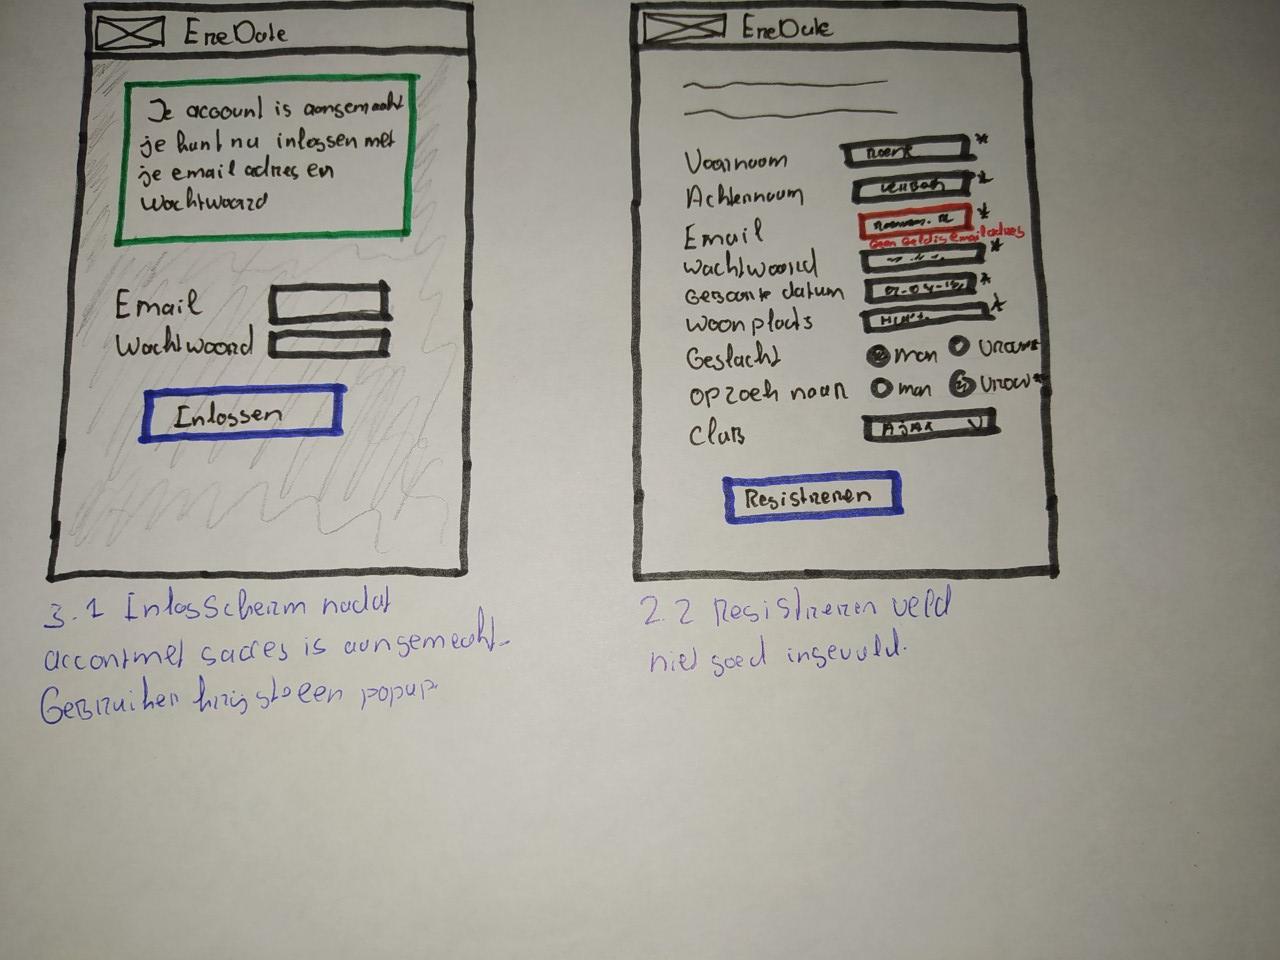 EreDate
Je account is aangemaakt
je kunt nu inloggen met
je email adres en
wachtwoord
Email
Wachtwoord
Inloggen
3.1 Inlogscherm nadat
account met succes is aangemaakt.
Gebruiker krijgt een popup
EreDate
Voornaam *
Achternaam *
Email *
Geen geldig email adres
Wachtwoord *
Geboorte datum *
Woonplaats *
Geslacht man vrouw*
op zoek naar man vrouw*
Club Ajax
Registreren
2.2 Registreren veld
niet goed ingevuld.